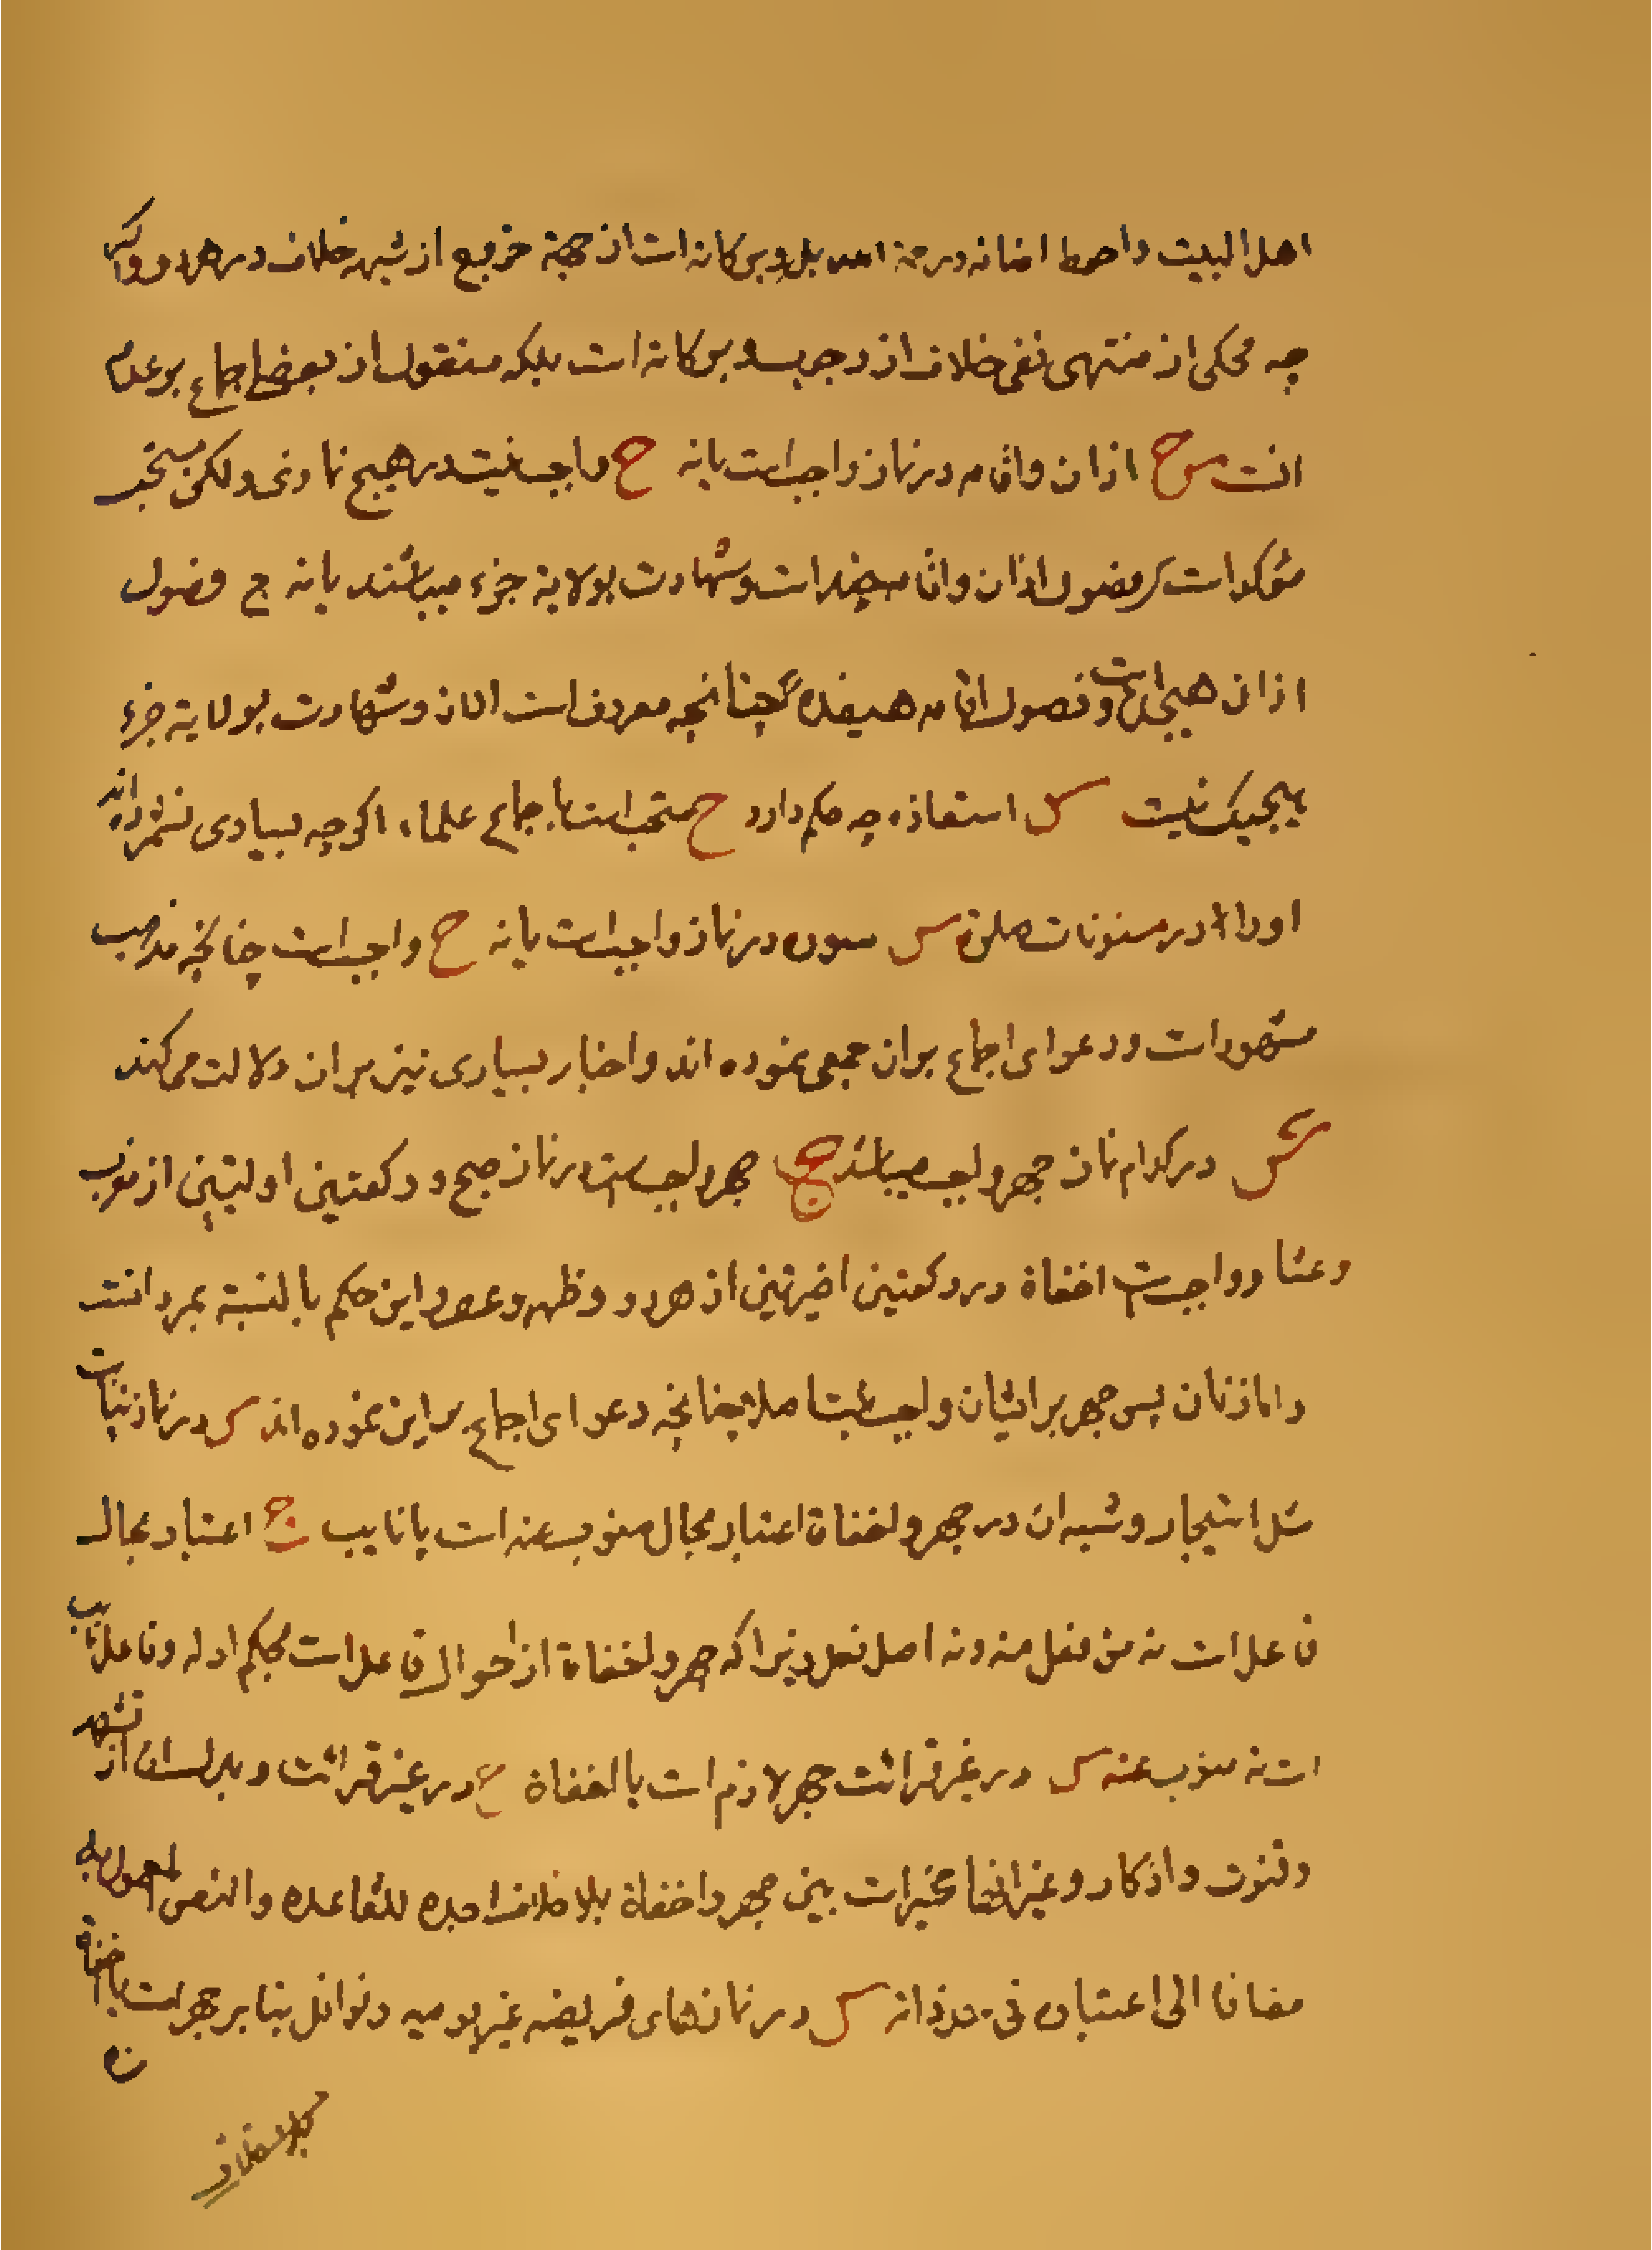 اهل البیت و احوط اضافه و رحمة الله بل و برکاته است از جهة خروج از شبهه خلاف در هر دو اگر
چه محکی از منتهی نفی خلاف از وجوب و برکاته است بلکه منقول از بعضی اجماع بر عدم
انست س ح اذان و اقامه در نماز واجبست یا نه ح واجب نیست در هیچ نمازی ولکن مستحب
مؤکد است س فصول اذان و اقامه چند است و شهادت بولایة جزء میباشند یا نه ج فصول
اذان هیجده است و فصول اقامه هیفده چنانچه معروف است الان و شهادت بولایة جزء
هیچیک نیست س استعاذه چه حکم دارد ح مستحب است باجماع علماء اگرچه بسیاری نشمرده اند
او را در مسنونات صلوة س سوره در نماز واجبست یا نه ح واجب است چنانچه مذهب
مشهور است و دعوای اجماع بر ان جمعی نموده اند و اخبار بسیاری نیز بر ان دلالت میکند
س در کدام نماز جهر واجب میباشد ج جهر واجبست در نماز صبح و دو رکعتین اولیتین از مغرب
و عشا و واجبست اخفاة در دو رکعتین اخیرتین از هر دو و ظهر و عصر و این حکم بالنسبة بمرد انست
و اما زنان پس جهر بر ایشان واجب نیست اصلا چنانچه دعوای اجماع بر این نموده اند س در نماز نیابت
مثل استیجار و شبه ان در جهر و اخفاة اعتبار بحال منوب عنه است یا نایب ج اعتبار بحال
فاعل است نه من فعل منه و نه اصل فعل زیرا که جهر و اخفاة از احوال فاعل است بحکم ادله و فاعل نایب
است نه منوب عنه س در غیر قرائت جهر لازم است یا اخفاة ج در غیر قرائت و بدل ان از تشهد
و قنوت و اذکار و غیر انها مخیر است بین جهر و اخفاة بلا خلاف اجده للقاعده و النص المعمول به
مضافا الی اعتباره فی حد ذاته س در نمازهای فریضه غیر یومیه و نوافل بنا بر جهر است یا اخفاة
ج
بلا خلاف